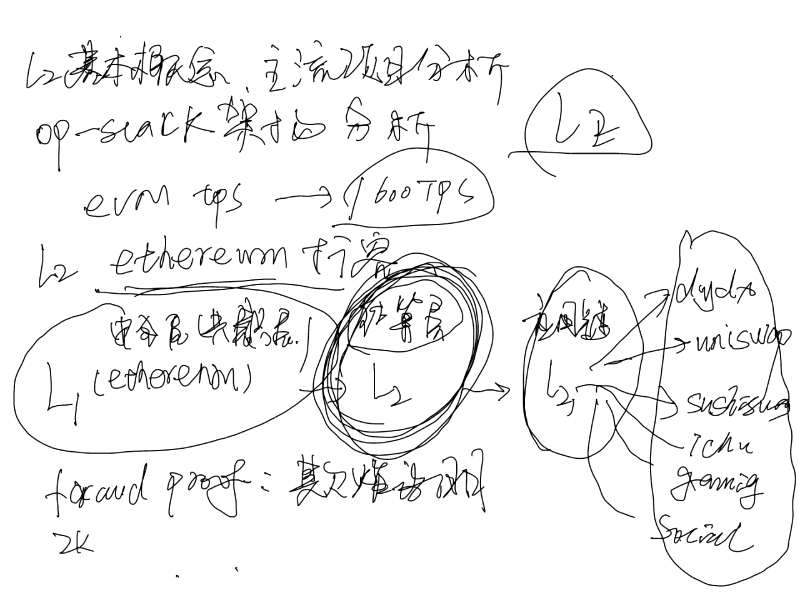 L2基本概念、主流项目分析
op-stack架构分析
L2
evm tps → 1600TPS
L2 ethereum 扩容
共识层
L1 (ethereum)
→
结算层
L2
→
应用链
L2
dydx
uniswap
sushiswap
ichu
gaming
social
fraud proof: 欺诈证明
ZK